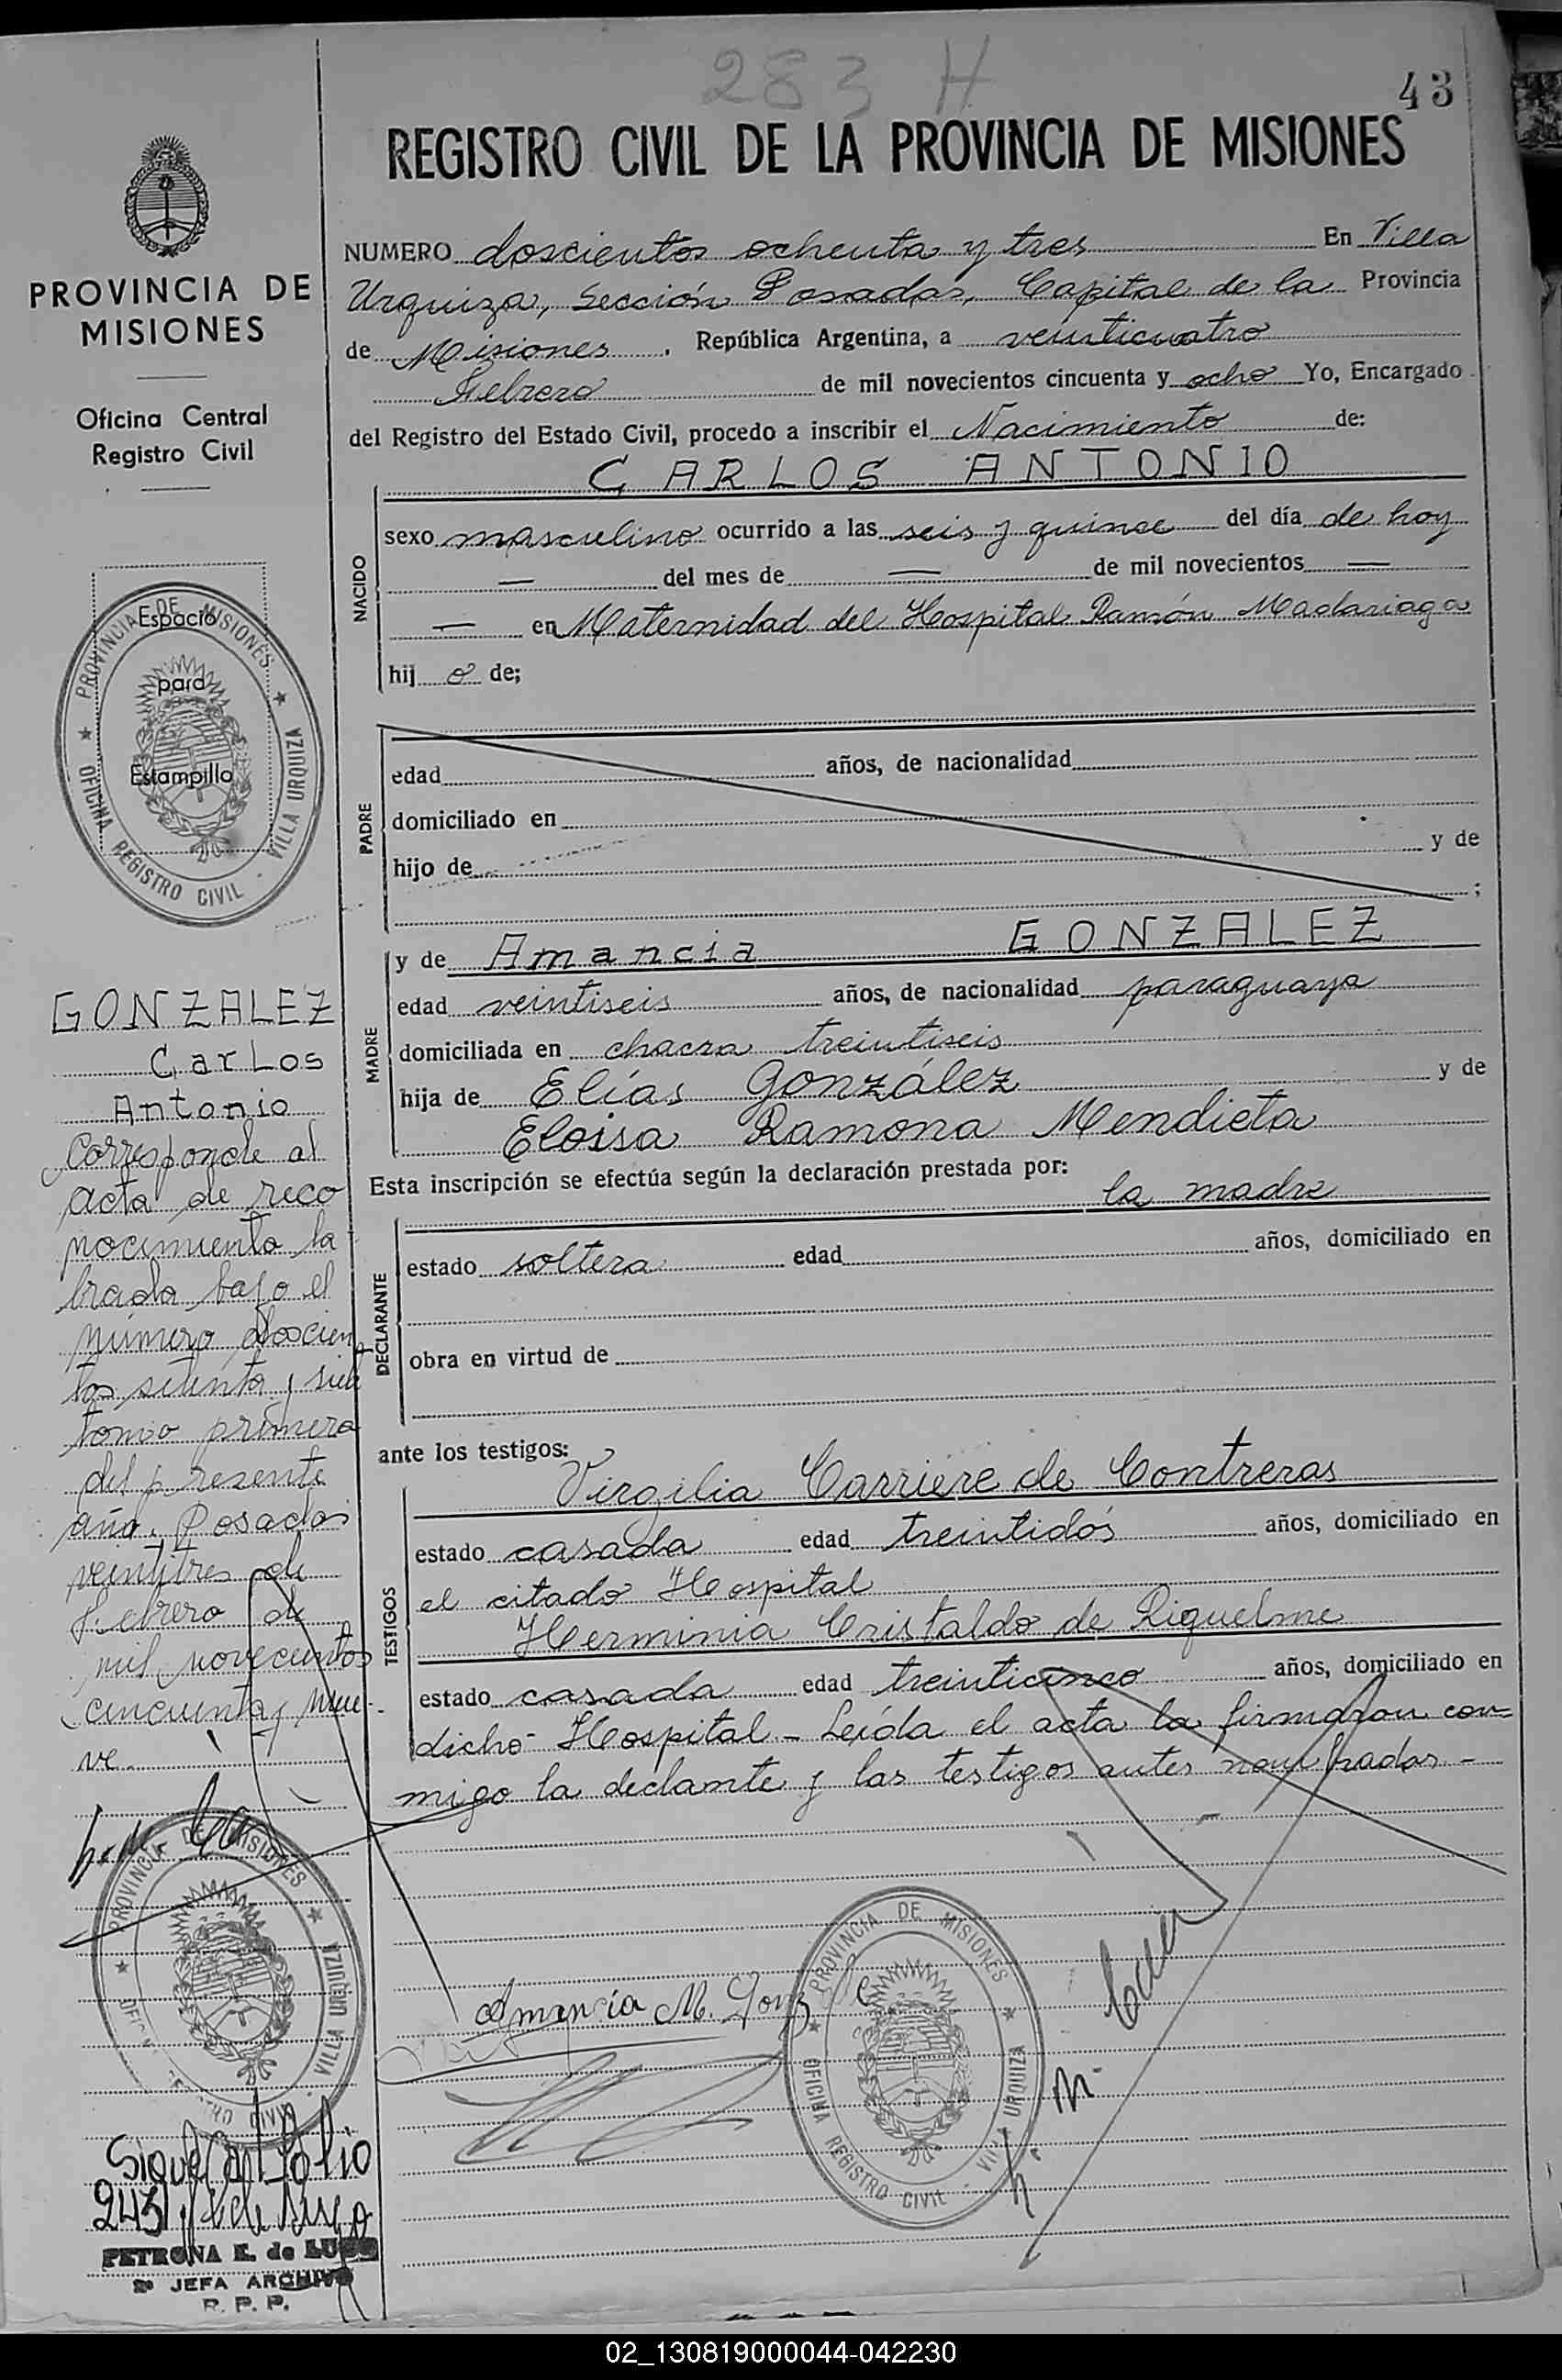 283 H
43
REGISTRO CIVIL DE LA PROVINCIA DE MISIONES
PROVINCIA DE
MISIONES
Oficina Central
Registro Civil
Espacio
para
Estampilla
PROVINCIA DE MISIONES
OFICINA REGISTRO CIVIL - VILLA URQUIZA
GONZALEZ
Carlos
Antonio
Corresponde al
acta de reco
nocimiento la
brada bajo el
número doscien
tos setenta y siete
tomo primero
del presente
año. Posadas
veintitres de
Febrero de
mil novecientos
cincuenta y nue-
ve.
PROVINCIA DE MISIONES
VILLA URQUIZA
Sigue al Folio
243
PETRONA E. de LUGO
2º JEFA ARCHIVO
R. P. P.
NUMERO doscientos ochenta y tres En Villa
Urquiza, Sección Posadas, Capital de la Provincia
de Misiones. República Argentina, a veinticuatro
Febrero de mil novecientos cincuenta y ocho Yo, Encargado
del Registro del Estado Civil, procedo a inscribir el Nacimiento de:
CARLOS ANTONIO
NACIDO
sexo masculino ocurrido a las seis y quince del día de hoy
— del mes de — de mil novecientos —
— en Maternidad del Hospital Ramón Madariaga
hij o de;
PADRE
edad años, de nacionalidad
domiciliado en
hijo de y de
;
MADRE
y de Amancia GONZALEZ
edad veintiseis años, de nacionalidad paraguaya
domiciliada en chacra treintiseis
hija de Elías González y de
Eloisa Ramona Mendieta
Esta inscripción se efectúa según la declaración prestada por:
la madre
DECLARANTE
estado soltera edad años, domiciliado en
obra en virtud de
ante los testigos:
Virgilia Carriere de Contreras
TESTIGOS
estado casada edad treintidós años, domiciliado en
el citado Hospital
Herminia Cristaldo de Riquelme
estado casada edad treinticinco años, domiciliado en
dicho Hospital - Leída el acta la firmaron con=
migo la declante y las testigos antes nombradas -
Amancia M. Gonz
PROVINCIA DE MISIONES
OFICINA REGISTRO CIVIL - VILLA URQUIZA
02_130819000044-042230